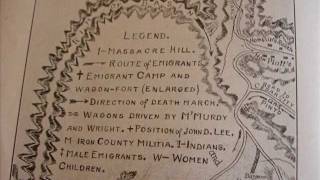 LEGEND.
1-MASSACRE HILL.
ROUTE OF EMIGRANTS
✝ EMIGRANT CAMP AND
WAGON-FORT (ENLARGED)
DIRECTION OF DEATH MARCH.
WAGONS DRIVEN BY M'MURDY
AND WRIGHT. + POSITION OF JOHN D. LEE.
M-IRON COUNTY MILITIA. I-INDIANS.
‡ MALE EMIGRANTS. W-WOMEN
CHILDREN.
ROAD TO